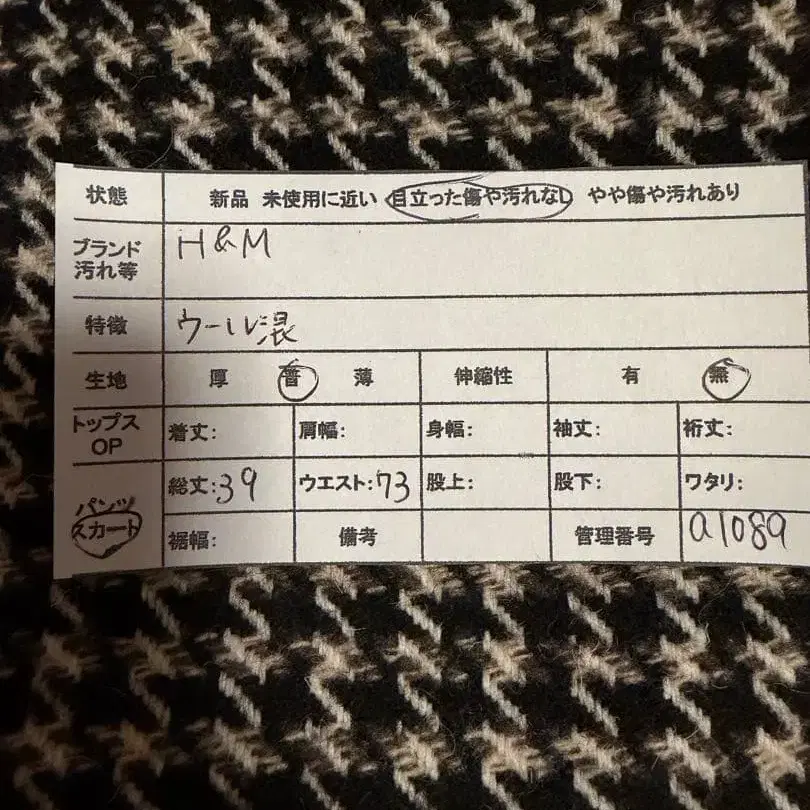 状態 新品 未使用に近い 目立った傷や汚れなし やや傷や汚れあり
ブランド
汚れ等
H&M
特徴 ウール混
生地 厚 普 薄 伸縮性 有 無
トップス
OP
着丈: 肩幅: 身幅: 袖丈: 裄丈:
パンツ
スカート
総丈:39 ウエスト:73 股上: 股下: ワタリ:
裾幅: 備考 管理番号 a1089